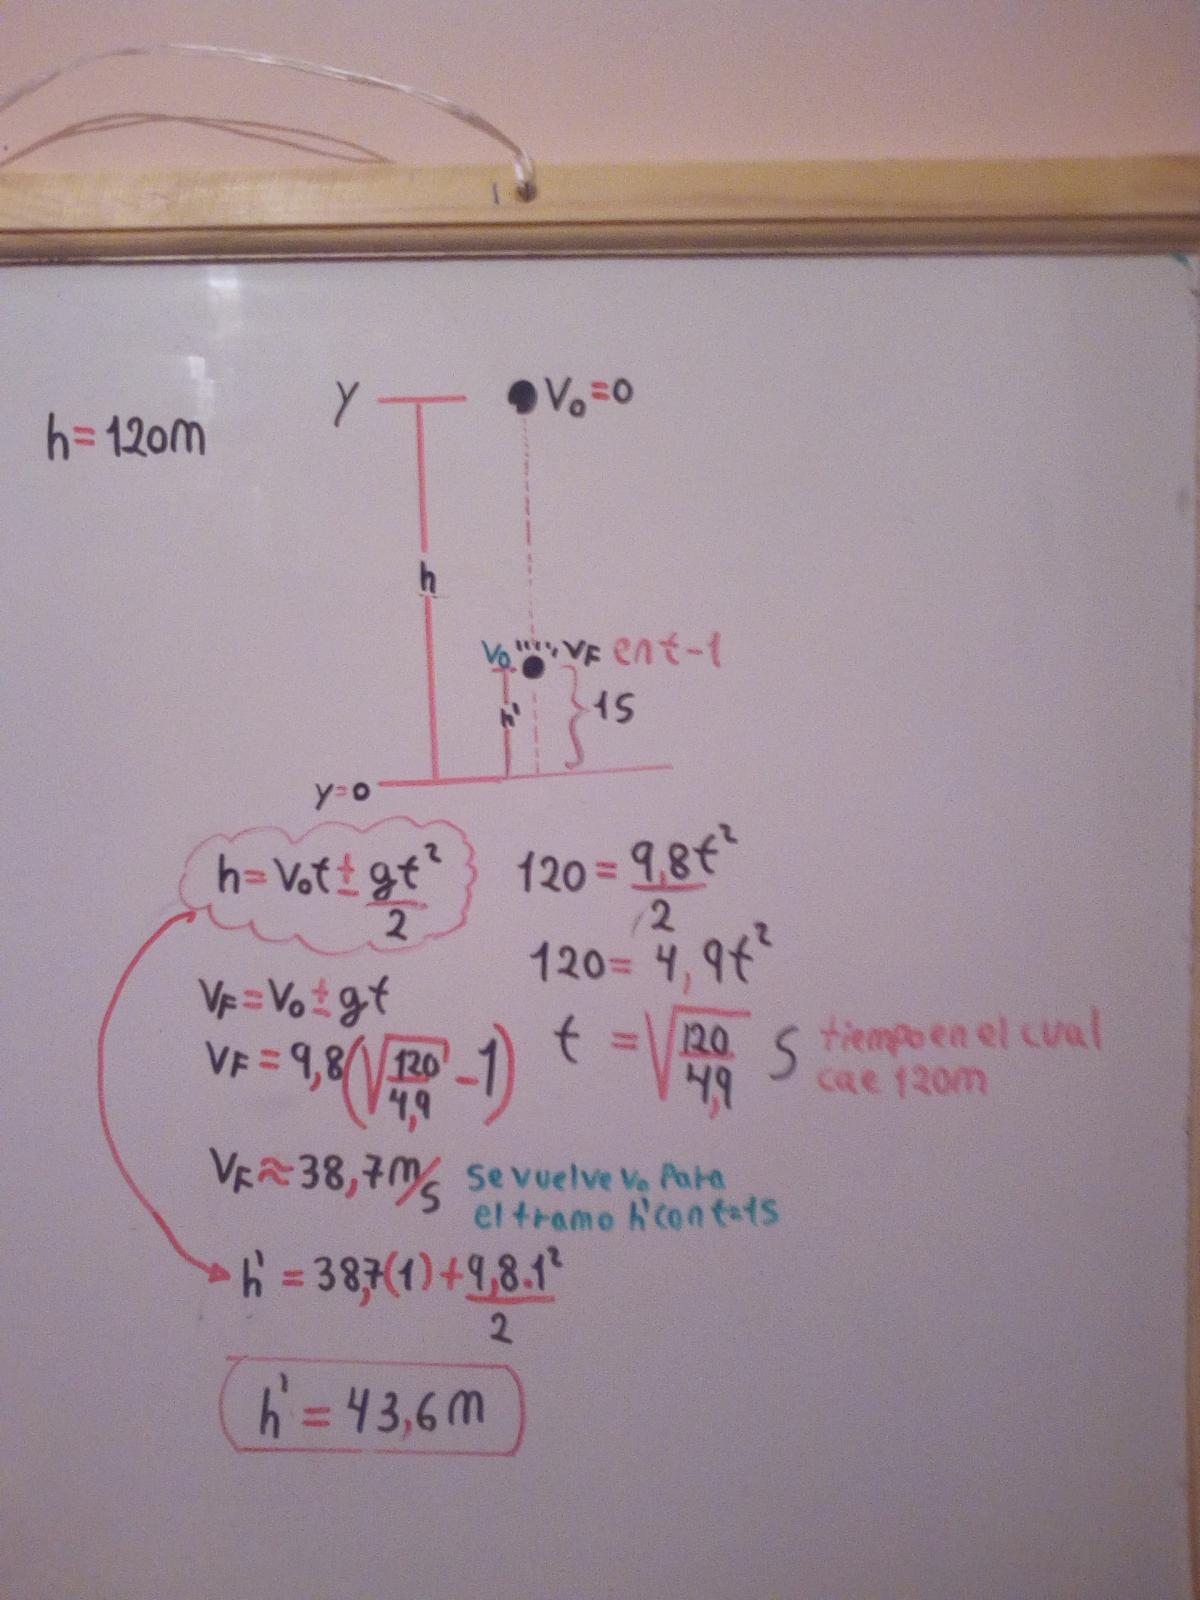 1
Y V₀=0
h=120m
h
V₀ VF en t-1
h' 1S
y=0
h=V₀t±gt²/2 120=9,8t²/2
120=4,9t²
VF=V₀±gt
t=√(120/4,9) S tiempo en el cual
cae 120m
VF=9,8(√(120/4,9)-1)
VF≈38,7m/s se vuelve V₀ Para
el tramo h' con t=1S
h'=38,7(1)+9,8.1²/2
h'=43,6m